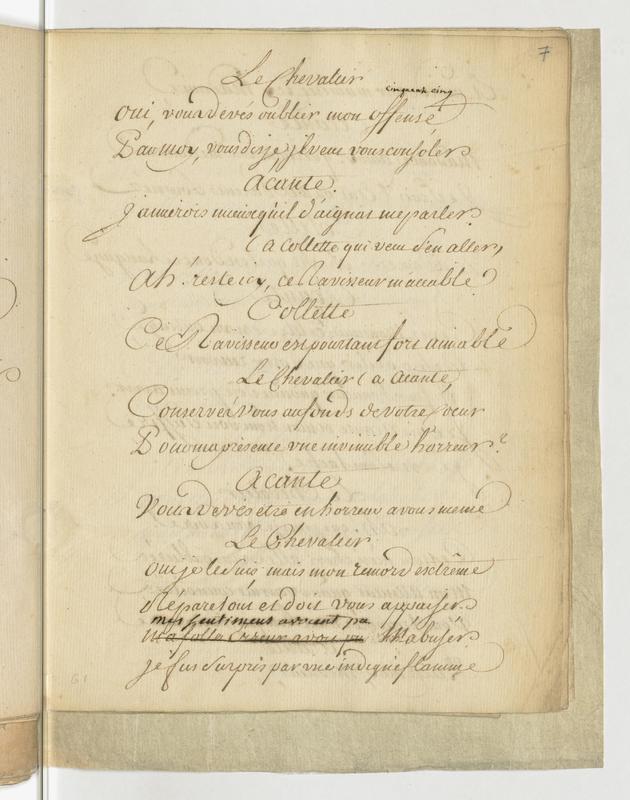 7
Le Chevalier
cinquante cinq
oui, vous devés oublier mon offense
D'aumoy, vous disje, il veut vous consoler
Acante.
J'aimerois mieux qu'il d'aignat me parler
(a Collette qui veut s'en aller,
Ah! reste icy, ce Ravisseur m'accable
Collette
Ce Ravisseur est pourtant fort aimable
Le Chevalier (a Acante,
Conservez vous au fonds de votre coeur
Pour ma présence une invincible horreur?
Acante
Vous devés etre en horreur a vous meme
Le Chevalier
oui je le suis, mais mon remord extrême
Répare tout et doit vous appaiser
mes sentimens avoient pu
ma folle erreur avoit pu m'abuser
je fus surpris par une indigne flamme
61